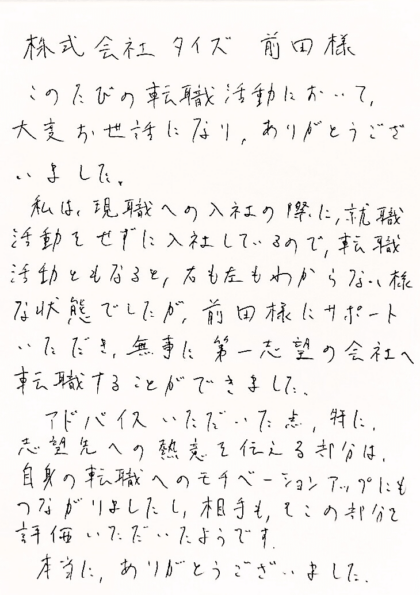 株式会社タイズ 前田様
このたびの転職活動において,
大変お世話になり,ありがとうござ
いました。
私は,現職への入社の際に,就職
活動をせずに入社しているので,転職
活動ともなると,右も左もわからない様
な状態でしたが,前田様にサポート
いただき,無事に第一志望の会社へ
転職することができました。
アドバイスいただいた点,特に,
志望先への熱意を伝える部分は,
自身の転職へのモチベーションアップにも
つながりましたし,相手も,そこの部分を
評価いただいたようです。
本当に,ありがとうございました。